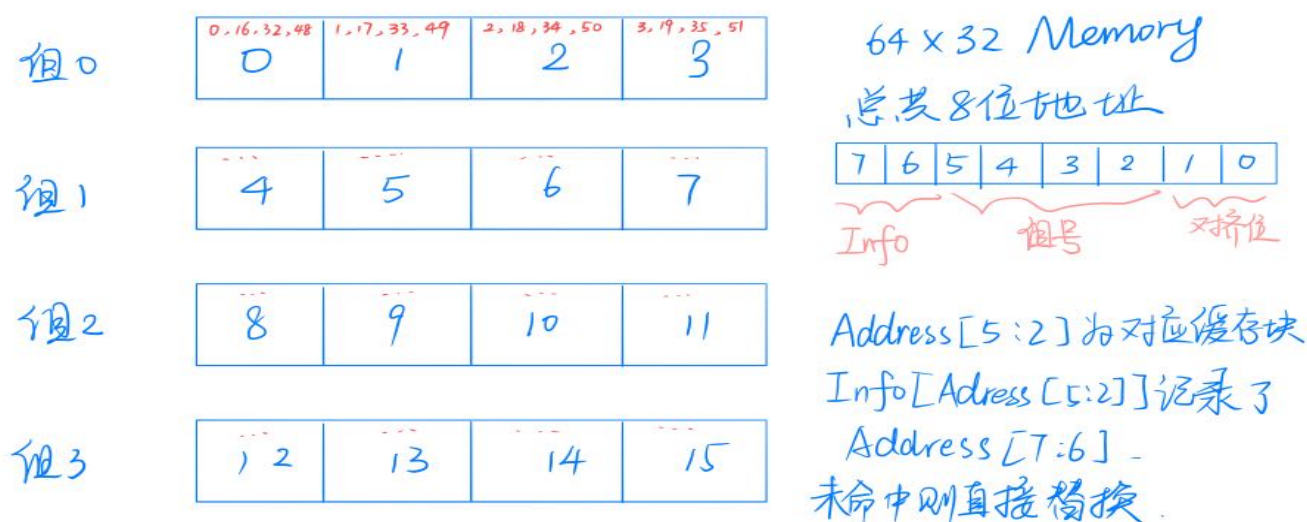 组0
0,16,32,48 1,17,33,49 2,18,34,50 3,19,35,51
0 1 2 3
组1
4 5 6 7
组2
8 9 10 11
组3
12 13 14 15
64×32 Memory
总共8位地址
7 6 5 4 3 2 1 0
Info 组号 对挤位
Address[5:2]为对应缓存块
Info[Adress[5:2]]记录了
Address[7:6].
未命中则直接替换.